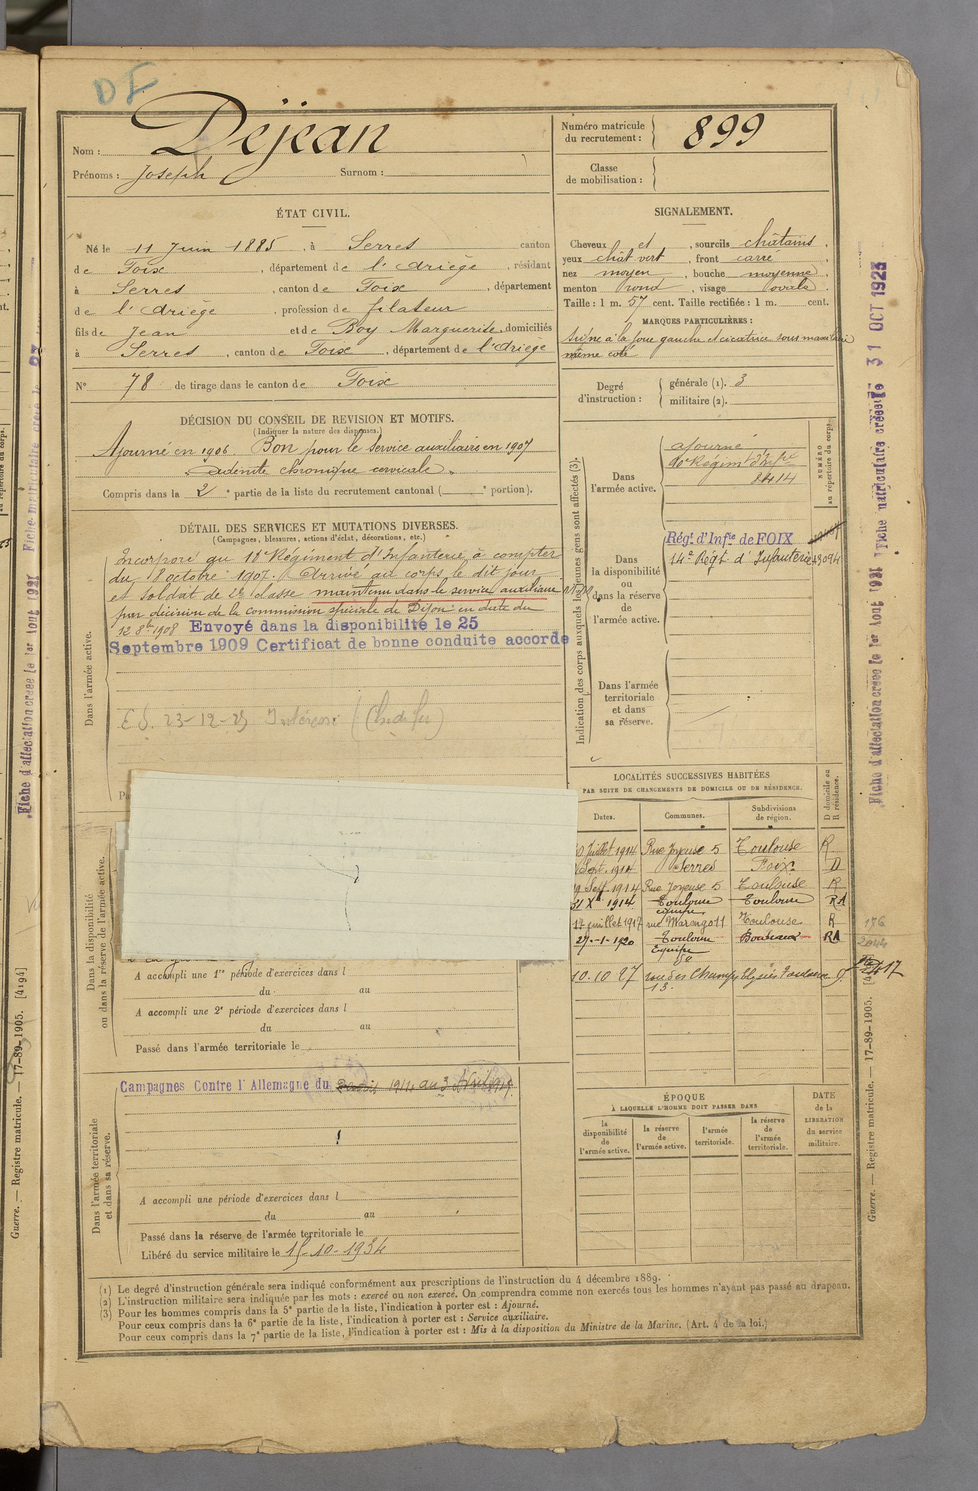 DF
Nom : Déjean
Prénoms : Joseph Surnom :
Numéro matricule du recrutement : 899
Classe de mobilisation :
ÉTAT CIVIL.
Né le 11 Juin 1885, à Serres canton
de Foix, département de l'Ariège, résidant
à Serres, canton de Foix, département
de l'Ariège, profession de filateur
fils de Jean et de Boy Marguerite, domiciliés
à Serres, canton de Foix, département de l'Ariège
N° 78 de tirage dans le canton de Foix
SIGNALEMENT.
Cheveux et, sourcils châtains,
yeux chât vert, front carré,
nez moyen, bouche moyenne,
menton rond, visage ovale.
Taille : 1 m. 57 cent. Taille rectifiée : 1 m. cent.
MARQUES PARTICULIÈRES :
à la joue gauche et cicatrice sous maxillaire
même coté
Degré d'instruction : générale (1). 3
militaire (2).
DÉCISION DU CONSEIL DE REVISION ET MOTIFS.
(Indiquer la nature des dispenses.)
Ajourné en 1906 Bon pour le Service auxiliaire en 1907
adénite chronique cervicale.
Compris dans la 2e partie de la liste du recrutement cantonal ( e portion).
DÉTAIL DES SERVICES ET MUTATIONS DIVERSES.
(Campagnes, blessures, actions d'éclat, décorations, etc.)
Dans l'armée active.
Incorporé au Régiment d'Infanterie à compter
du 8 octobre 1907. Arrivé au corps le dit jour
et soldat de 2e classe maintenu dans le service auxiliaire
par décision de la commission spéciale de Dijon en date du
12 8bre 1908 Envoyé dans la disponibilité le 25
Septembre 1909 Certificat de bonne conduite accordé
23-12-2
Indication des corps auxquels les jeunes gens sont affectés (3).
NUMÉRO au répertoire du corps.
Dans l'armée active.
ajourné
Régiment d'Infie
2414
Dans la disponibilité ou dans la réserve de l'armée active.
Régt. d'Infie de FOIX
14e Régt d'Infanterie
Dans l'armée territoriale et dans sa réserve.
LOCALITÉS SUCCESSIVES HABITÉES
PAR SUITE DE CHANGEMENTS DE DOMICILE OU DE RÉSIDENCE.
Dates. Communes. Subdivisions de région. D domicile ou R résidence.
Juillet 1914 Rue Joyeuse 5 Toulouse R
Sept. 1914 Serres Foix D
Sept 1914 Rue Joyeuse 5 Toulouse R
1914 Toulouse Toulouse RA
17 juillet 1917 rue Toulouse R
27-1-1920 Toulouse Bordeaux RA
10.10 27 rue des Champs Elysées Toulouse
13.
2417
Dans la disponibilité ou dans la réserve de l'armée active.
A accompli une 1re période d'exercices dans l
du au
A accompli une 2e période d'exercices dans l
du au
Passé dans l'armée territoriale le
Dans l'armée territoriale et dans sa réserve.
Campagnes Contre l'Allemagne du 1914 au 3 Avril 1919.
A accompli une période d'exercices dans l
du au
Passé dans la réserve de l'armée territoriale le
Libéré du service militaire le 15-10-1934
ÉPOQUE
À LAQUELLE L'HOMME DOIT PASSER DANS
la disponibilité de l'armée active. la réserve de l'armée active. l'armée territoriale. la réserve de l'armée territoriale.
DATE de la LIBÉRATION du service militaire.
(1) Le degré d'instruction générale sera indiqué conformément aux prescriptions de l'instruction du 4 décembre 1889.
(2) L'instruction militaire sera indiquée par les mots : exercé ou non exercé. On comprendra comme non exercés tous les hommes n'ayant pas passé au drapeau.
(3) Pour les hommes compris dans la 5e partie de la liste, l'indication à porter est : Ajourné.
Pour ceux compris dans la 6e partie de la liste, l'indication à porter est : Service auxiliaire.
Pour ceux compris dans la 7e partie de la liste, l'indication à porter est : Mis à la disposition du Ministre de la Marine. (Art. 4 de la loi.)
Fiche d'affectation créée le 1er Aout 1921 Fiche matriculaire créée le 31 OCT 1923
Guerre. — Registre matricule. — 17-89-1905. [4194]
Fiche d'affectation créée le 1er Aout 1921 Fiche matriculaire créée le
Guerre. — Registre matricule. — 17-89-1905.